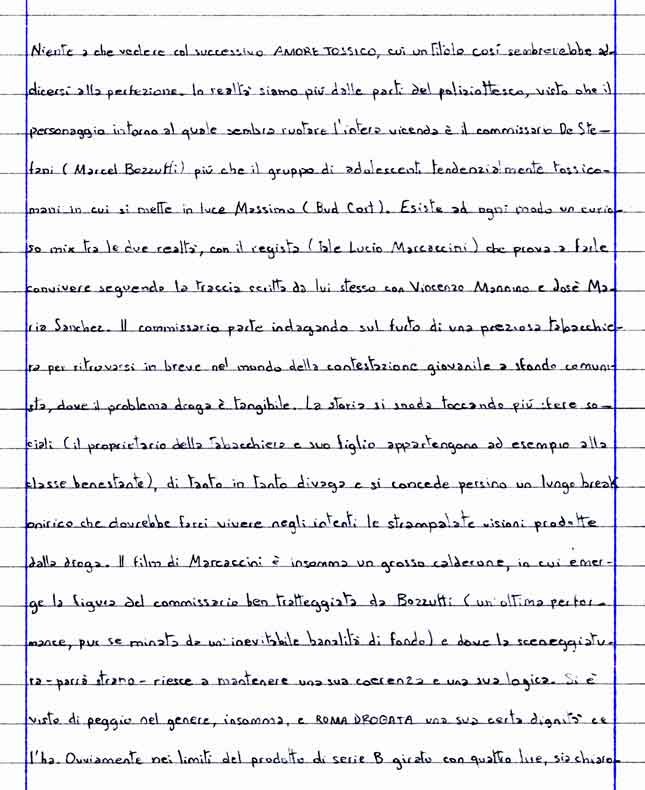 Niente a che vedere col successivo AMORE TOSSICO, cui un titolo così sembrerebbe ad-
dicersi alla perfezione. In realtà siamo più dalle parti del poliziottesco, visto che il
personaggio intorno al quale sembra ruotare l'intera vicenda è il commissario De Ste-
fani (Marcel Bozzuffi) più che il gruppo di adolescenti tendenzialmente tossico-
mani in cui si mette in luce Massimo (Bud Cort). Esiste ad ogni modo un curio-
so mix tra le due realtà, con il regista (tale Lucio Marcaccini) che prova a farle
convivere seguendo la traccia scritta da lui stesso con Vincenzo Mannino e José Ma-
ria Sanchez. Il commissario parte indagando sul furto di una preziosa tabacchie-
ra per ritrovarsi in breve nel mondo della contestazione giovanile a sfondo comuni-
sta, dove il problema droga è tangibile. La storia si snoda toccando più sfere so-
ciali (il proprietario della tabacchiera e suo figlio appartengono ad esempio alla
classe benestante), di tanto in tanto divaga e si concede persino un lungo break
onirico che dovrebbe farci vivere negli intenti le strampalate visioni prodotte
dalla droga. Il film di Marcaccini è insomma un grosso calderone, in cui emer-
ge la figura del commissario ben tratteggiata da Bozzuffi (un'ottima perfor-
mance, pur se minata da un'inevitabile banalità di fondo) e dove la sceneggiatu-
ra - parrà strano - riesce a mantenere una sua coerenza e una sua logica. Si è
visto di peggio nel genere, insomma, e ROMA DROGATA una sua certa dignità ce
l'ha. Ovviamente nei limiti del prodotto di serie B girato con quattro lire, sia chiaro.